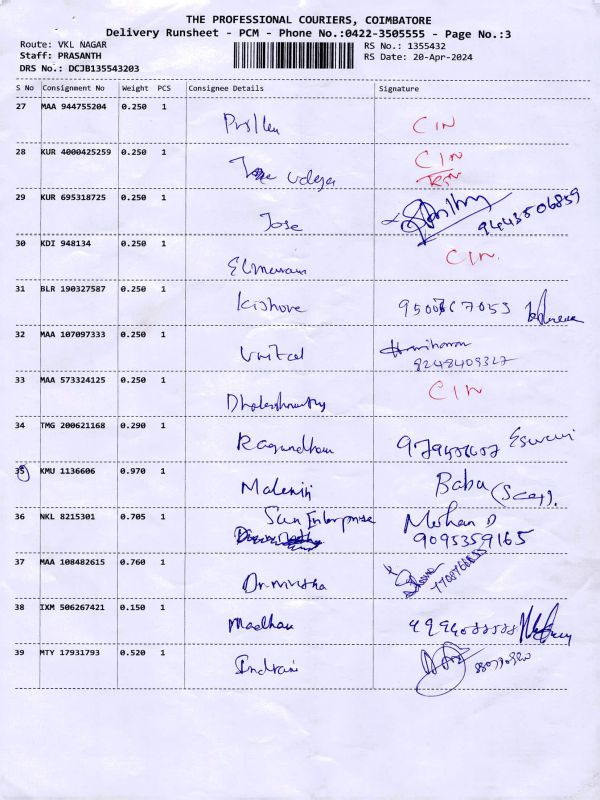 THE PROFESSIONAL COURIERS, COIMBATORE
Delivery Runsheet - PCM - Phone No.:0422-3505555 - Page No.:3
Route: VKL NAGAR
RS No.: 1355432
Staff: PRASANTH
RS Date: 20-Apr-2024
DRS No.: DCJB135543203
S No Consignment No Weight PCS Consignee Details Signature
27 MAA 944755204 0.250 1 CIN
28 KUR 4000425259 0.250 1 CIN
29 KUR 695318725 0.250 1 Jose 9443506859
30 KDI 948134 0.250 1 CIN
31 BLR 190327587 0.250 1 Kishore
32 MAA 107097333 0.250 1 Hariharan
8248409327
33 MAA 573324125 0.250 1 CIN
34 TMG 200621168 0.290 1 Eswari
35 KMU 1136606 0.970 1 Baba
36 NKL 8215301 0.705 1 Sun Enterprise Mohan D
9095359165
37 MAA 108482615 0.760 1
38 IXM 506267421 0.150 1 Madhan
39 MTY 17931793 0.520 1 Indrani